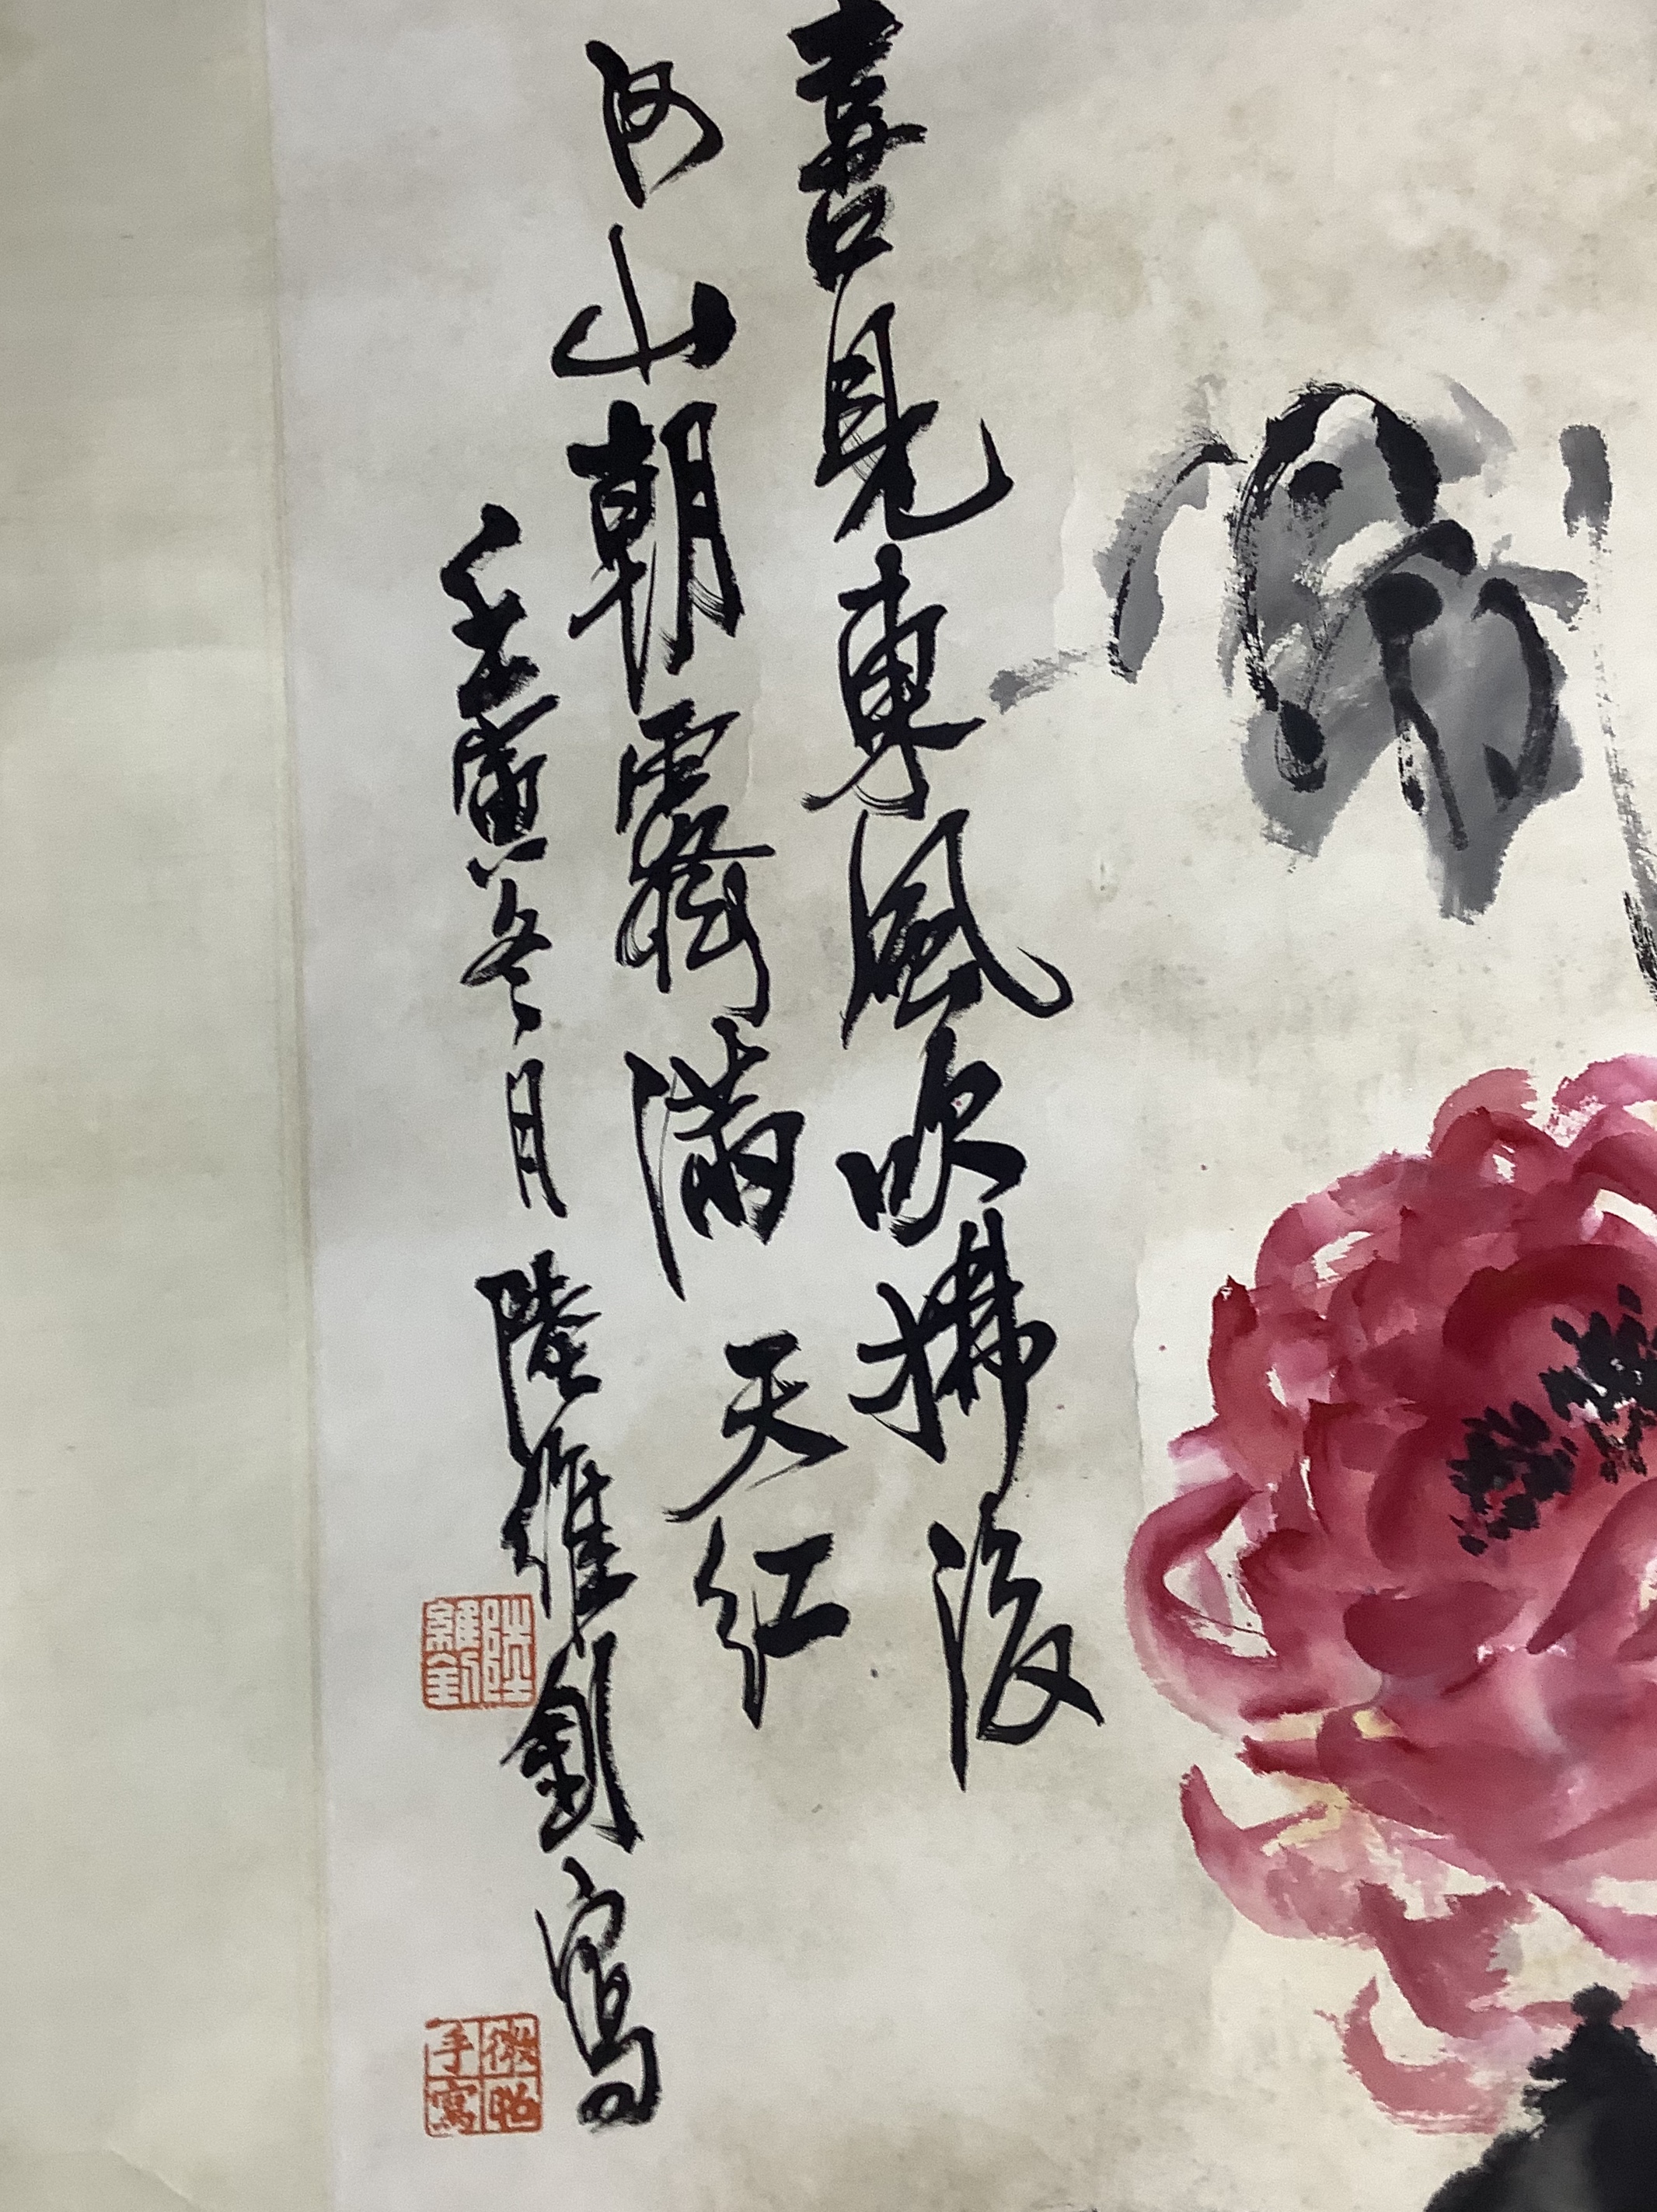 喜見東風吹拂後
河山朝霧滿天紅
壬寅冬月陸維釗寫
陸維釗
手寫